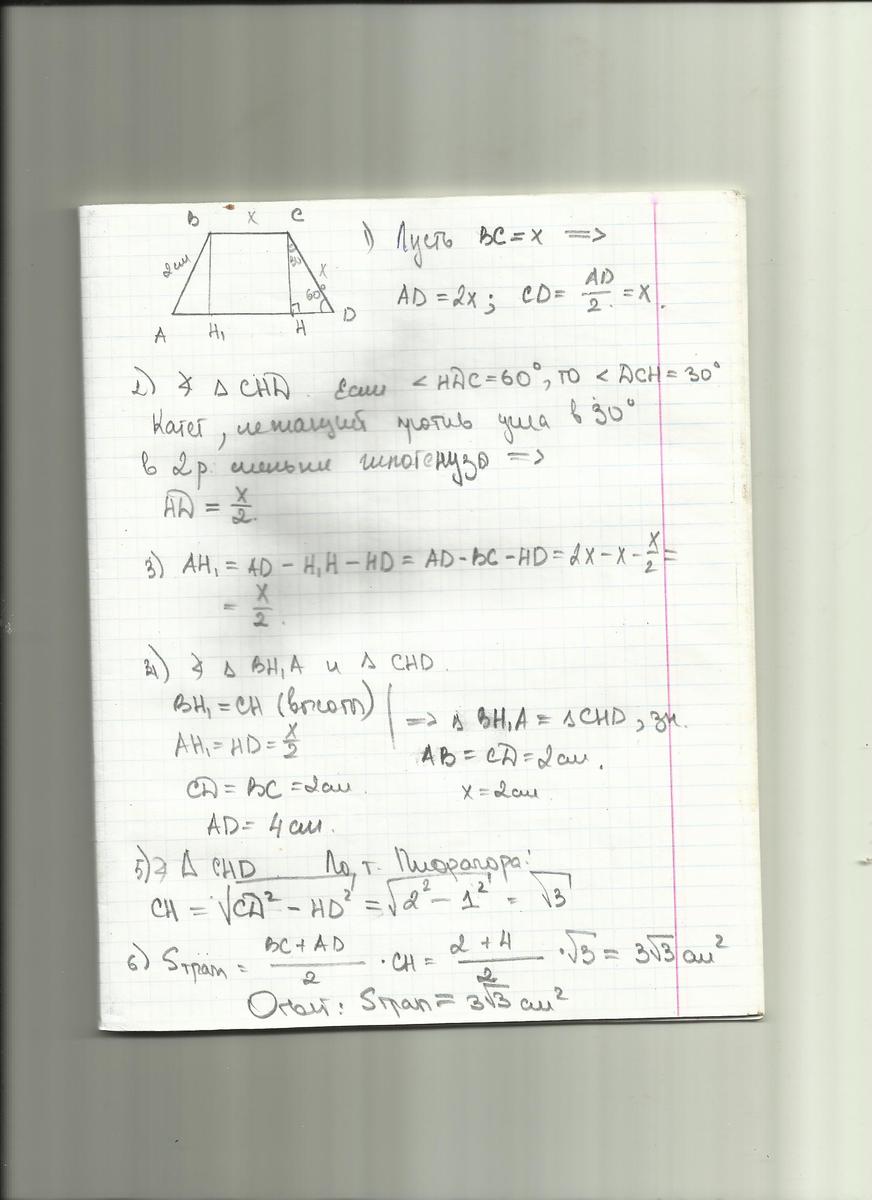 B x C
2см 30 x
60°
A H₁ H D
1) Пусть BC = x ⇒
AD = 2x; CD = AD/2 = x.
2) ∢ △ CHD. Если < HDC = 60°, то < DCH = 30°
Катет, лежащий против угла в 30°
в 2 р. меньши гипотенузы ⇒
HD = x/2.
3) AH₁ = AD − H₁H − HD = AD − BC − HD = 2x − x − x/2 =
= x/2.
4) ∢ △ BH₁A и △ CHD.
BH₁ = CH (высоты)
AH₁ = HD = x/2
⇒ △ BH₁A = △ CHD, зн.
AB = CD = 2см.
CD = BC = 2см. x = 2см
AD = 4см.
5) ∢ △ CHD По т. Пифагора:
CH = √(CD² − HD²) = √(2² − 1²) = √3
6) Sтрап = (BC + AD)/2 · CH = (2 + 4)/2 · √3 = 3√3 см²
Ответ: Sтрап = 3√3 см²